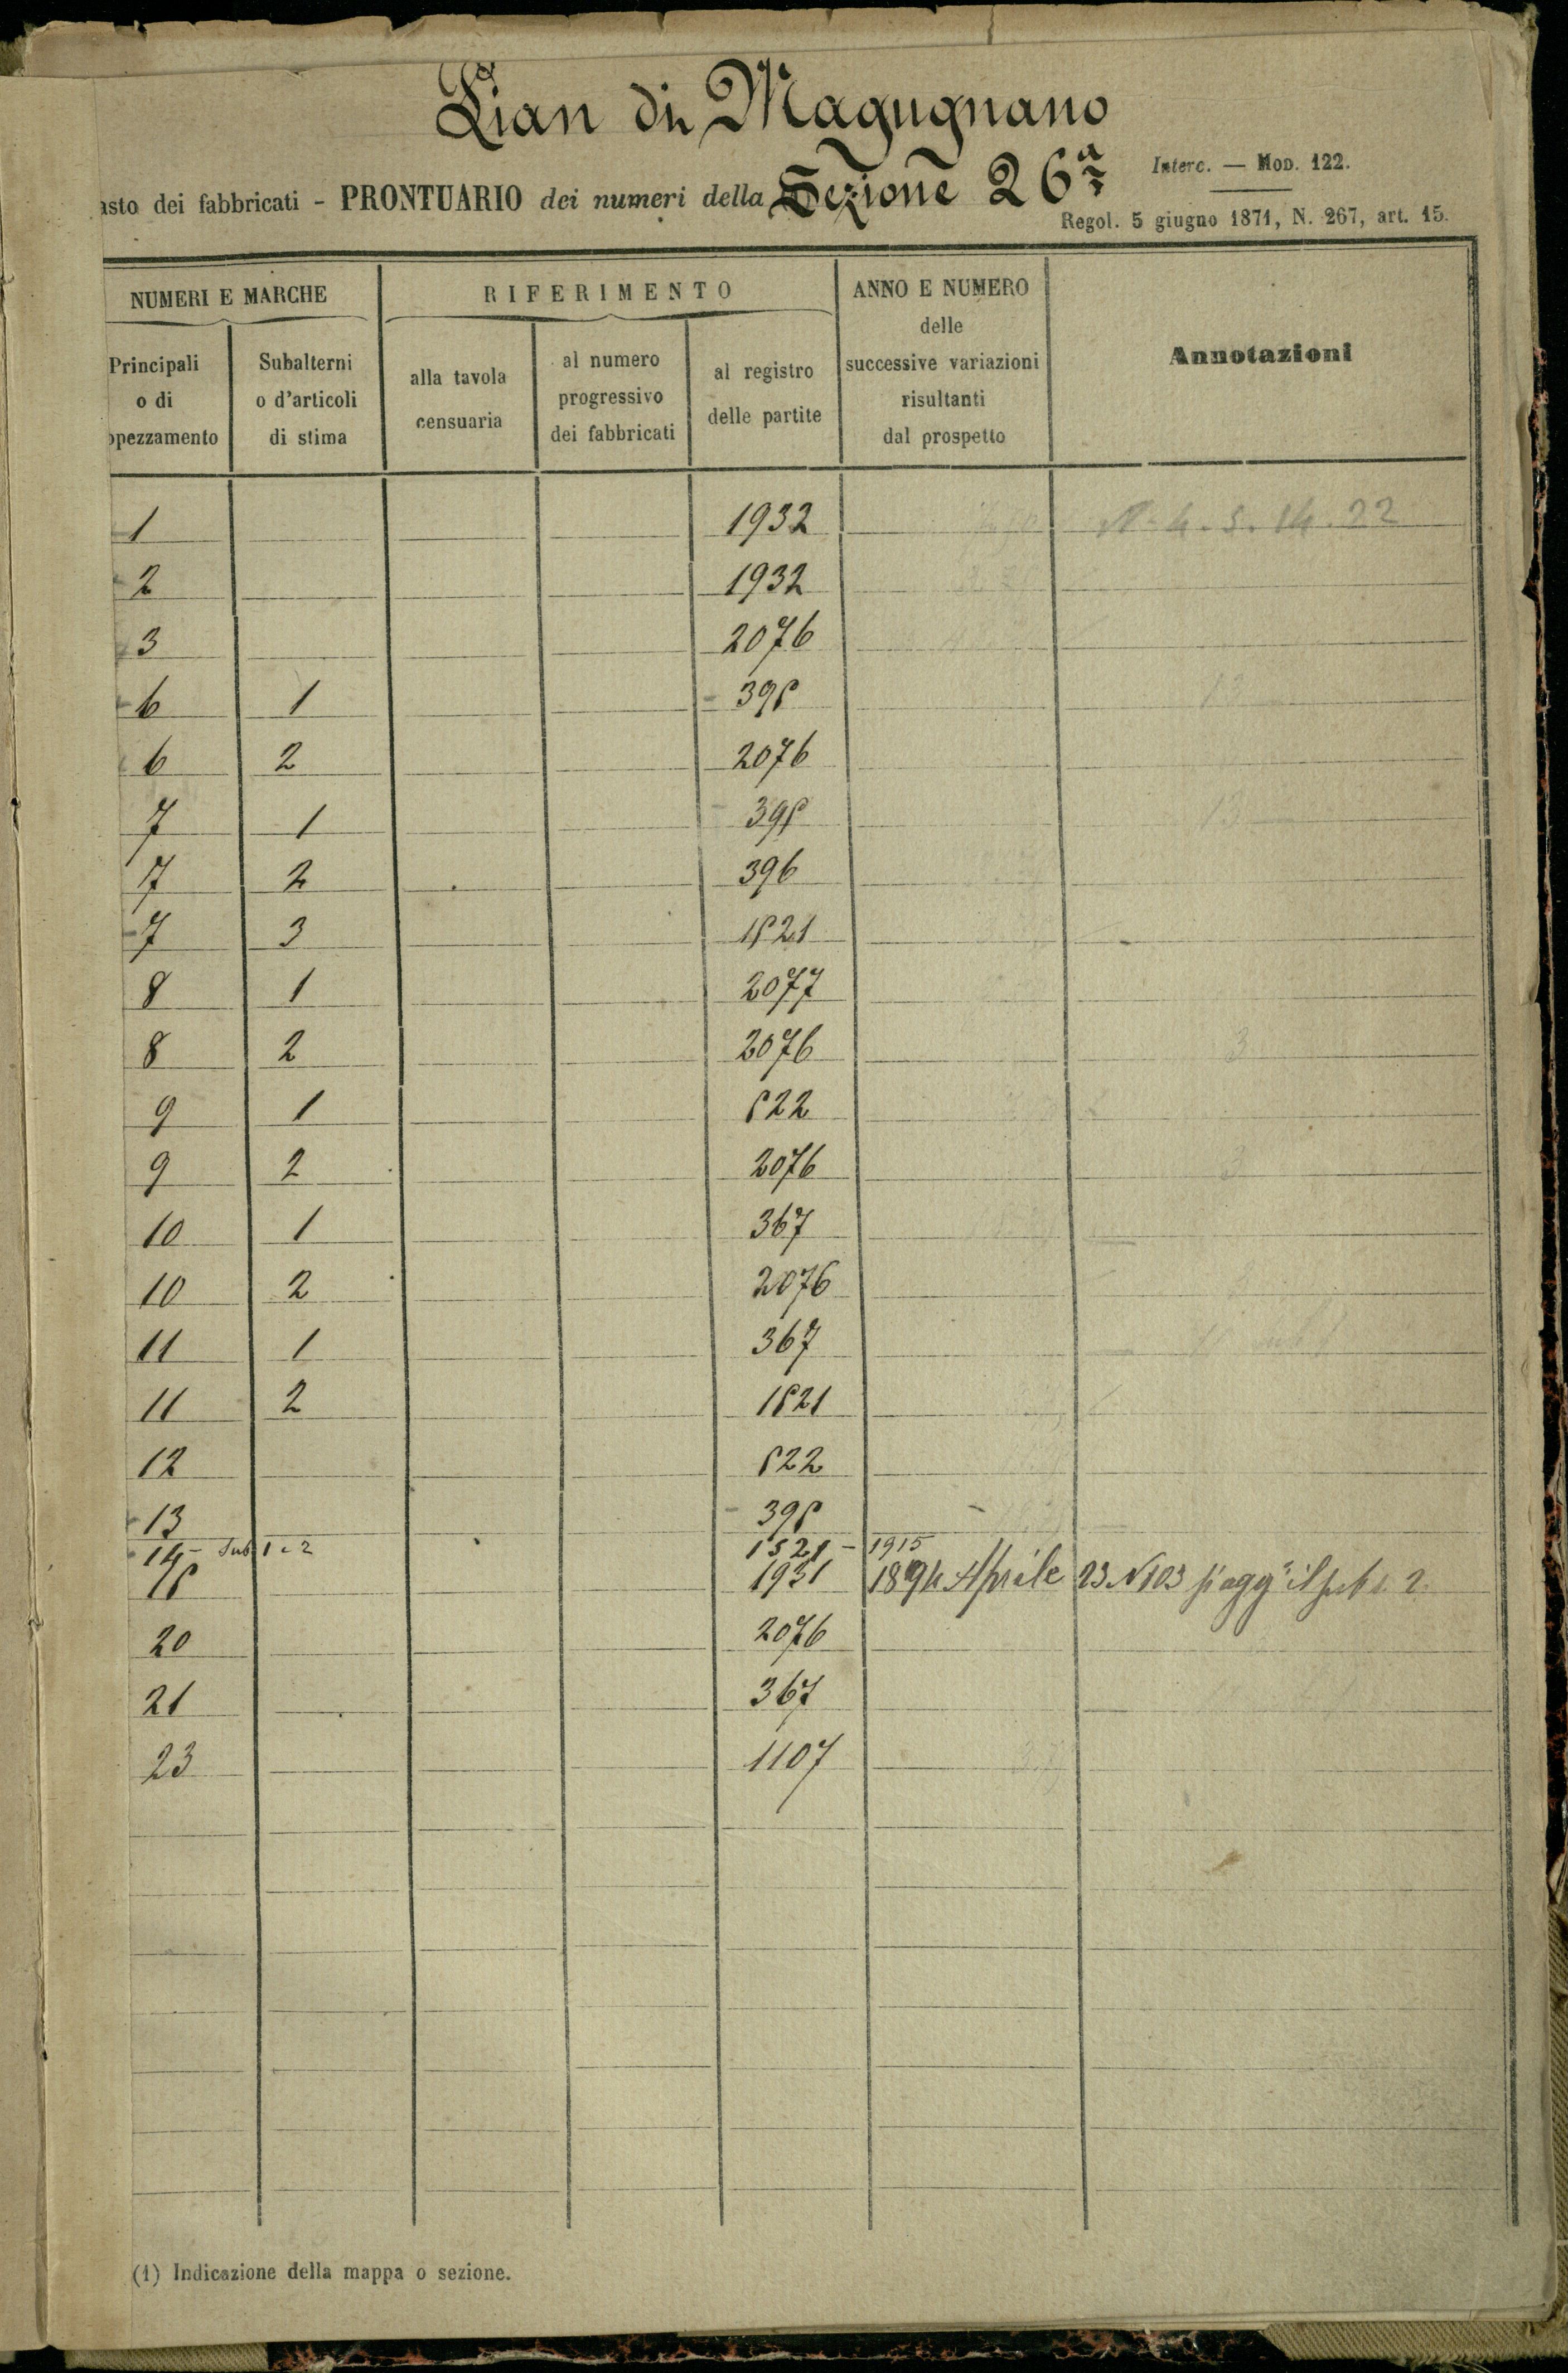 Pian di Magugnano
asto dei fabbricati - PRONTUARIO dei numeri della Sezione 26ª
Interc. — Mod. 122.
Regol. 5 giugno 1871, N. 267, art. 15.
NUMERI E MARCHE RIFERIMENTO ANNO E NUMERO delle successive variazioni risultanti dal prospetto Annotazioni
Principali o di opezzamento Subalterni o d'articoli di stima alla tavola censuaria al numero progressivo dei fabbricati al registro delle partite
1 1932 N. 4. 5. 14. 22
2 1932
3 2076
6 1 398
6 2 2076
7 1 398
7 2 396
7 3 1821
8 1 2077
8 2 2076 3
9 1 822
9 2 2076 3
10 1 367
10 2 2076
11 1 367
11 2 1821
12 822
13 398
14 - Sub 1 e 2 1521 - 1915
18 1931 1894 Aprile 23 N 103 si agg il sub 2
20 2076
21 367
23 1107
(1) Indicazione della mappa o sezione.